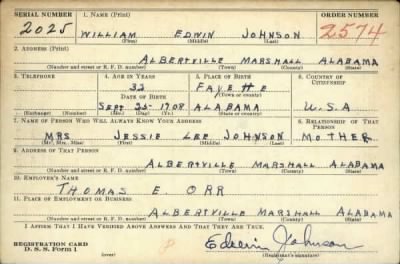 SERIAL NUMBER 1. NAME (Print) ORDER NUMBER
2025 WILLIAM EDWIN JOHNSON 2574
(First) (Middle) (Last)
2. ADDRESS (Print)
ALBERTVILLE MARSHALL ALABAMA
(Number and street or R. F. D. number) (Town) (County) (State)
3. TELEPHONE 4. AGE IN YEARS 5. PLACE OF BIRTH 6. COUNTRY OF CITIZENSHIP
32 FAYETTE
DATE OF BIRTH (Town or county)
SEPT 25-1908 ALABAMA U.S.A
(Exchange) (Number) (Mo.) (Day) (Yr.) (State or country)
7. NAME OF PERSON WHO WILL ALWAYS KNOW YOUR ADDRESS 8. RELATIONSHIP OF THAT PERSON
MRS JESSIE LEE JOHNSON MOTHER
(Mr., Mrs., Miss) (First) (Middle) (Last)
9. ADDRESS OF THAT PERSON
ALBERTVILLE MARSHALL ALABAMA
(Number and street or R. F. D. number) (Town) (County) (State)
10. EMPLOYER'S NAME
THOMAS E. ORR
11. PLACE OF EMPLOYMENT OR BUSINESS
ALBERTVILLE MARSHALL ALABAMA
(Number and street or R. F. D. number) (Town) (County) (State)
I AFFIRM THAT I HAVE VERIFIED ABOVE ANSWERS AND THAT THEY ARE TRUE.
REGISTRATION CARD
D. S. S. Form 1 8 Edwin Johnson
(Registrant's signature)